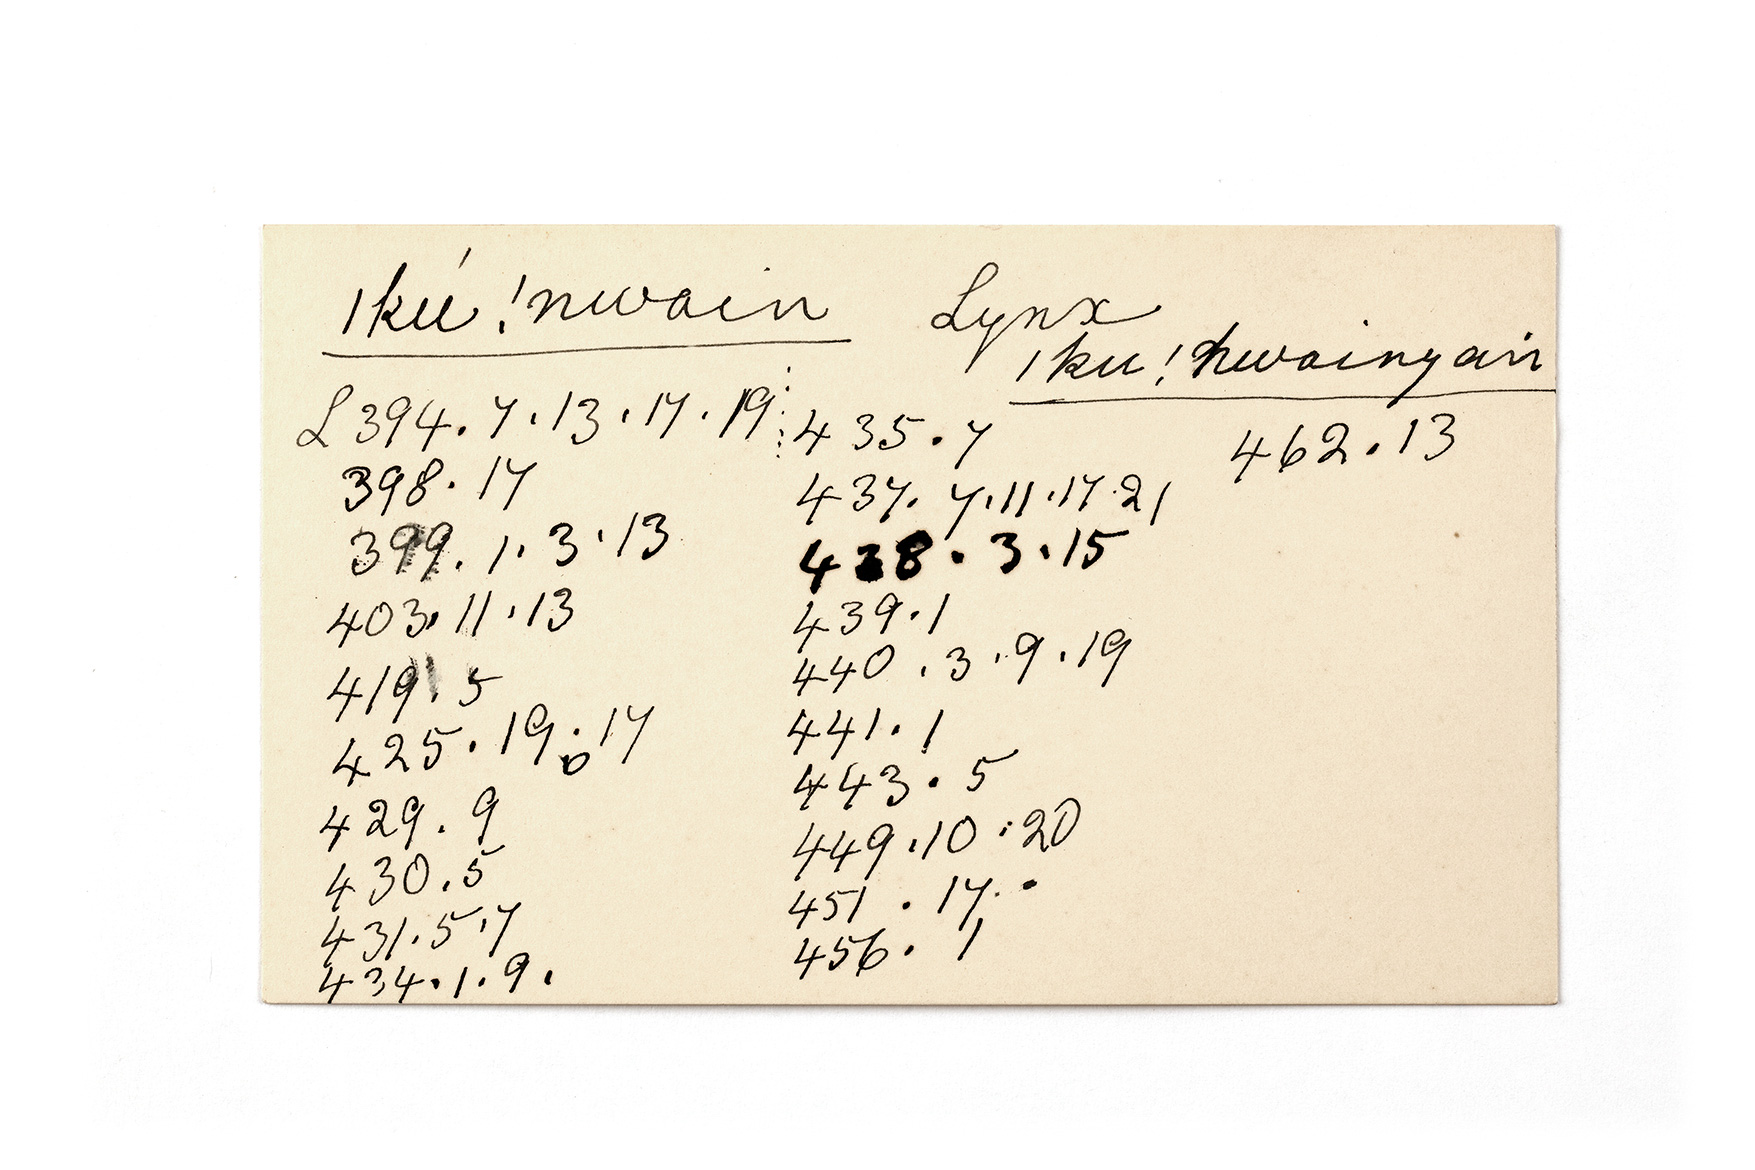 Ikú !nwain Lynx
Iku !nwaingain
L 394. 7. 13. 17. 19
398. 17
399. 1. 3. 13
403. 11. 13
419. 5
425. 19. 17
429. 9
430. 5
431. 5. 7
434. 1. 9.
435. 7
437. 7. 11. 17. 21
438. 3. 15
439. 1
440. 3. 9. 19
441. 1
443. 5
449. 10. 20
451. 17.
456. 1
462. 13